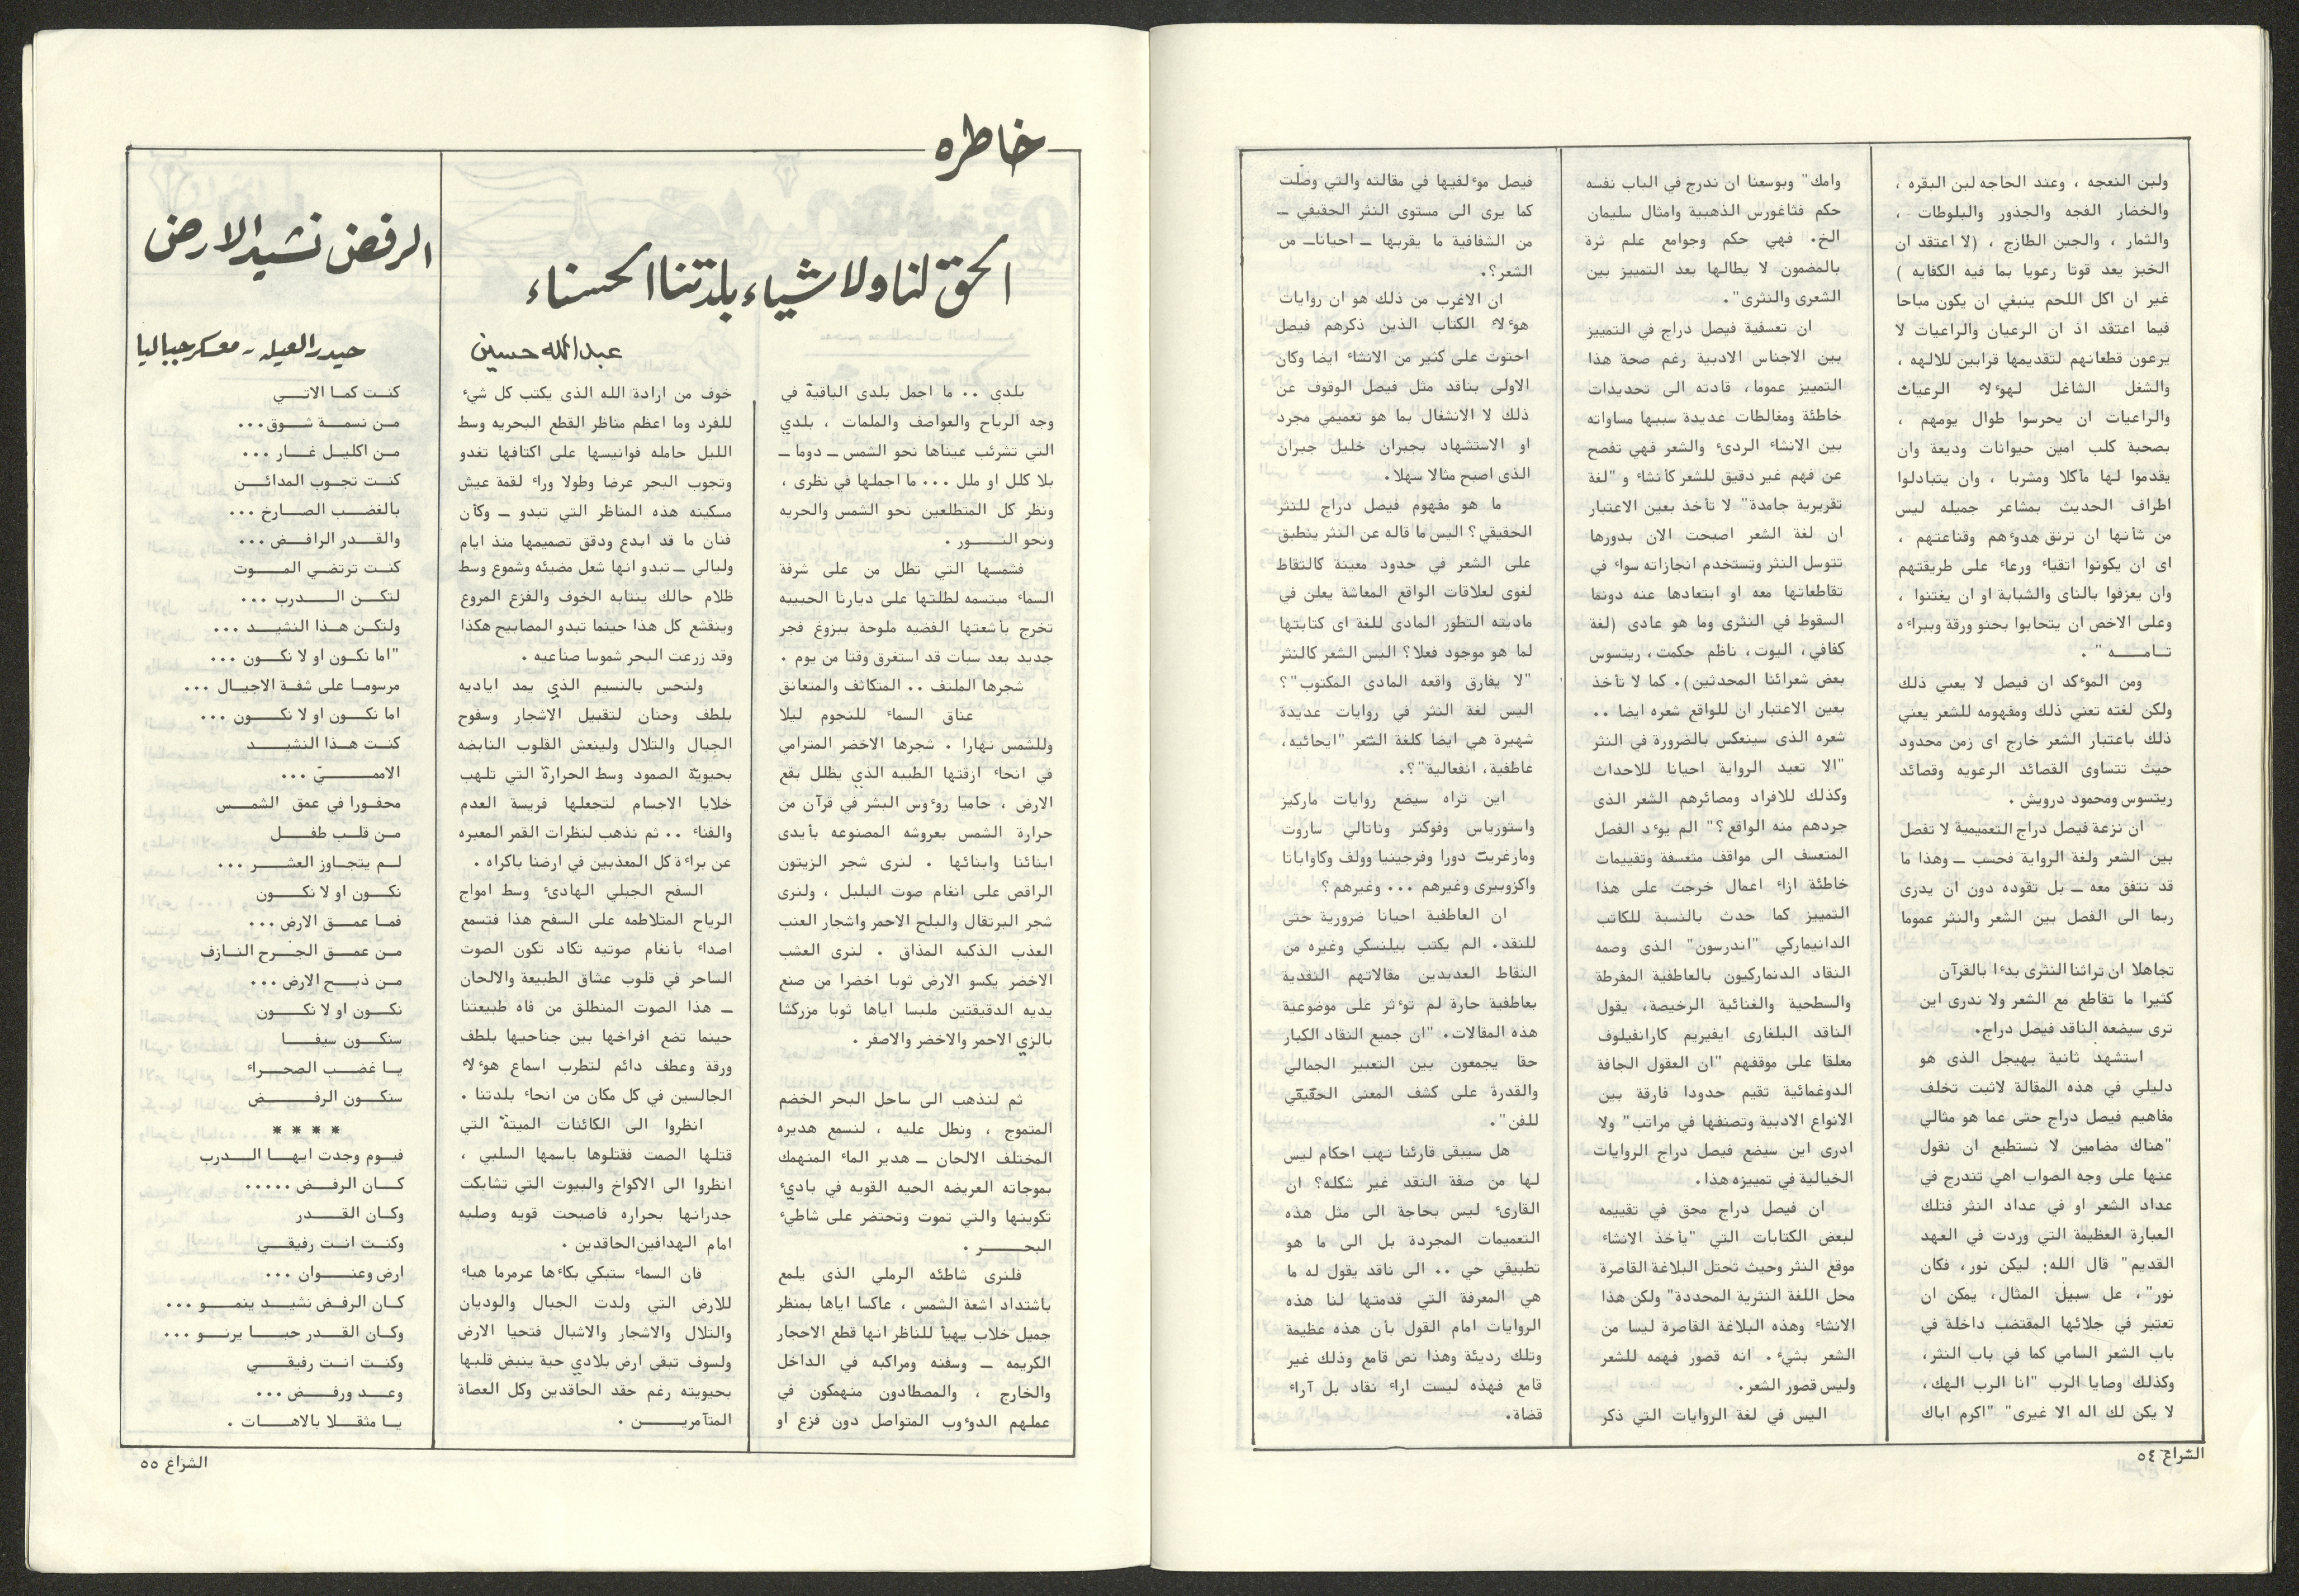 ولبن النعجه ، وعند الحاجه لبن البقره ،
والخضار الفجه والجذور والبلوطات ،
والثمار ، والجبن الطازج ، (لا اعتقد ان
الخبز يعد قوتا رعويا بما فيه الكفايه )
غير ان اكل اللحم ينبغي ان يكون مباحا
فيما اعتقد اذ ان الرعيان والراعيات لا
يرعون قطعانهم لتقديمها قرابين للالهه ،
والشغل الشاغل لهؤلاء الرعيات
والراعيات ان يحرسوا طوال يومهم ،
بصحبة كلب امين حيوانات وديعة وان
يقدموا لها مأكلا ومشربا ، وان يتبادلوا
اطراف الحديث بمشاعر جميله ليس
من شأنها ان ترنق هدوءهم وقناعتهم ،
اى ان يكونوا اتقياء ورعاء على طريقتهم
وان يعزفوا بالناى والشبابة او ان يغتنوا ،
وعلى الاخص ان يتحابوا بحنو ورقة وببراءه
تامــه " .
ومن المؤكد ان فيصل لا يعني ذلك
ولكن لغته تعني ذلك ومفهومه للشعر يعني
ذلك باعتبار الشعر خارج اى زمن محدود
حيث تتساوى القصائد الرعويه وقصائد
ريتسوس ومحمود درويش .
ان نزعة فيصل دراج التعميمية لا تفصل
بين الشعر ولغة الرواية فحسب ــ وهذا ما
قد نتفق معه ــ بل تقوده دون ان يدرى
ربما الى الفصل بين الشعر والنثر عموما
تجاهلا ان تراثنا النثرى بدءا بالقرآن
كثيرا ما تقاطع مع الشعر ولا ندرى اين
ترى سيضعه الناقد فيصل دراج.
استشهد ثانية بهيجل الذى هو
دليلي في هذه المقالة لاثبت تخلف
مفاهيم فيصل دراج حتى عما هو مثالي
"هناك مضامين لا نستطيع ان نقول
عنها على وجه الصواب اهي تندرج في
عداد الشعر او في عداد النثر فتلك
العبارة العظيمة التي وردت في العهد
القديم" قال الله: ليكن نور، فكان
نور"، عل سبيل المثال، يمكن ان
تعتبر في جلائها المقتضب داخلة في
باب الشعر السامي كما في باب النثر،
وكذلك وصايا الرب "انا الرب الهك،
لا يكن لك اله الا غيرى" "اكرم اباك
وامك" وبوسعنا ان ندرج في الباب نفسه
حكم فثاغورس الذهبية وامثال سليمان
الخ. فهي حكم وجوامع علم ثرة
بالمضمون لا يطالها بعد التمييز بين
الشعرى والنثرى".
ان تعسفية فيصل دراج في التمييز
بين الاجناس الادبية رغم صحة هذا
التمييز عموما، قادته الى تحديدات
خاطئة ومغالطات عديدة سببها مساواته
بين الانشاء الردىء والشعر فهي تفصح
عن فهم غير دقيق للشعر كأنشاء و "لغة
تقريرية جامدة" لا تأخذ بعين الاعتبار
ان لغة الشعر اصبحت الان بدورها
تتوسل النثر وتستخدم انجازاته سواء في
تقاطعاتها معه او ابتعادها عنه دونما
السقوط في النثرى وما هو عادى (لغة
كفافي، اليوت، ناظم حكمت، ريتسوس
بعض شعرائنا المحدثين). كما لا تأخذ
بعين الاعتبار ان للواقع شعره ايضا ..
شعره الذى سينعكس بالضرورة في النثر
"الا تعيد الرواية احيانا للاحداث
وكذلك للافراد ومصائرهم الشعر الذى
جردهم منه الواقع؟" الم يؤد الفصل
المتعسف الى مواقف متعسفة وتقييمات
خاطئة ازاء اعمال خرجت على هذا
التمييز كما حدث بالنسبة للكاتب
الدانيماركي "اندرسون" الذى وصمه
النقاد الدنماركيون بالعاطفية المفرطة
والسطحية والغنائية الرخيصة، يقول
الناقد البلغارى ايفيريم كارانفيلوف
معلقا على موقفهم "ان العقول الجافة
الدوغمائية تقيم حدودا فارقة بين
الانواع الادبية وتصنفها في مراتب" ولا
ادرى اين سيضع فيصل دراج الروايات
الخيالية في تمييزه هذا.
ان فيصل دراج محق في تقييمه
لبعض الكتابات التي "يأخذ الانشاء
موقع النثر وحيث تحتل البلاغة القاصرة
محل اللغة النثرية المحددة" ولكن هذا
الانشاء وهذه البلاغة القاصرة ليسا من
الشعر بشيء. انه قصور فهمه للشعر
وليس قصور الشعر.
اليس في لغة الروايات التي ذكر
فيصل مؤلفيها في مقالته والتي وصلت
كما يرى الى مستوى النثر الحقيقي ــ
من الشفافية ما يقربها ــ احياناــ من
الشعر؟.
ان الاغرب من ذلك هو ان روايات
هؤلاء الكتاب الذين ذكرهم فيصل
احتوت على كثير من الانشاء ايضا وكان
الاولى بناقد مثل فيصل الوقوف عن
ذلك لا الانشغال بما هو تعميمي مجرد
او الاستشهاد بجبران خليل جبران
الذى اصبح مثالا سهلا.
ما هو مفهوم فيصل دراج للنثر
الحقيقي؟ اليس ما قاله عن النثر ينطبق
على الشعر في حدود معينة كالتقاط
لغوى لعلاقات الواقع المعاشة يعلن في
ماديته التطور المادى للغة اى كتابتها
لما هو موجود فعلا؟ اليس الشعر كالنثر
"لا يفارق واقعه المادى المكتوب"؟
اليس لغة النثر في روايات عديدة
شهيرة هي ايضا كلغة الشعر "ايحائيه،
عاطفية، انفعالية"؟.
اين تراه سيضع روايات ماركيز
واستورياس وفوكنر وناتالي ساروت
ومارغريت دورا وفرجينيا وولف وكاواباتا
واكزوبيرى وغيرهم ... وغيرهم؟
ان العاطفية احيانا ضرورية حتى
للنقد. الم يكتب بيلنسكي وغيره من
النقاط العديدين مقالاتهم النقدية
بعاطفية حارة لم تؤثر على موضوعية
هذه المقالات. "ان جميع النقاد الكبار
حقا يجمعون بين التعبير الجمالي
والقدرة على كشف المعنى الحقيقي
للفن".
هل سيبقى قارئنا نهب احكام ليس
لها من صفة النقد غير شكله؟ ان
القارىء ليس بحاجة الى مثل هذه
التعميمات المجردة بل الى ما هو
تطبيقي حي .. الى ناقد يقول له ما
هي المعرفة التي قدمتها لنا هذه
الروايات امام القول بأن هذه عظيمة
وتلك رديئة وهذا نص قامع وذلك غير
قامع فهذه ليست اراء نقاد بل آراء
قضاة.
الشراع ٥٤
خاطره
الحق لنا ولاشياء بلدتنا الحسناء
عبدالله حسين
بلدى .. ما اجمل بلدى الباقية في
وجه الرياح والعواصف والملمات ، بلدي
التي تشرئب عيناها نحو الشمس ــ دوما ــ
بلا كلل او ملل ... ما اجملها في نظرى ،
ونظر كل المتطلعين نحو الشمس والحريه
ونحو النــور .
فشمسها التي تطل من على شرفة
السماء مبتسمه لطلتها على ديارنا الحبيبه
تخرج بأشعتها الفضيه ملوحة ببزوغ فجر
جديد بعد سبات قد استغرق وقتا من يوم .
شجرها الملتف .. المتكاثف والمتعانق
عناق السماء للنجوم ليلا
وللشمس نهارا . شجرها الاخضر المترامي
في انحاء ازقتها الطيبه الذي يظلل بقع
الارض ، حاميا رؤوس البشر في قرآن من
حرارة الشمس بعروشه المصنوعه بأيدى
ابنائنا وابنائها . لنرى شجر الزيتون
الراقص على انغام صوت البلبل ، ولنرى
شجر البرتقال والبلح الاحمر واشجار العنب
العذب الذكيه المذاق . لنرى العشب
الاخضر يكسو الارض ثوبا اخضرا من صنع
يديه الدقيقتين ملبسا اياها ثوبا مزركشا
بالزي الاحمر والاخضر والاصفر .
ثم لنذهب الى ساحل البحر الخضم
المتموج ، ونطل عليه ، لنسمع هديره
المختلف الالحان ــ هدير الماء المنهمك
بموجاته العريضه الحيه القويه في بادىء
تكوينها والتي تموت وتحتضر على شاطىء
البحــر .
فلنرى شاطئه الرملي الذى يلمع
باشتداد اشعة الشمس ، عاكسا اياها بمنظر
جميل خلاب يهيأ للناظر انها قطع الاحجار
الكريمه ــ وسفنه ومراكبه في الداخل
والخارج ، والمصطادون منهمكون في
عملهم الدؤوب المتواصل دون فزع او
خوف من ارادة الله الذى يكتب كل شيء
للفرد وما اعظم مناظر القطع البحريه وسط
الليل حامله فوانيسها على اكتافها تغدو
وتجوب البحر عرضا وطولا وراء لقمة عيش
مسكينه هذه المناظر التي تبدو ــ وكأن
فنان ما قد ابدع ودقق تصميمها منذ ايام
وليالي ــ تبدو انها شعل مضيئه وشموع وسط
ظلام حالك ينتابه الخوف والفزع المروع
وينقشع كل هذا حينما تبدو المصابيح هكذا
وقد زرعت البحر شموسا صناعيه .
ولنحس بالنسيم الذي يمد اياديه
بلطف وحنان لتقبيل الاشجار وسفوح
الجبال والتلال ولينعش القلوب النابضه
بحيوية الصمود وسط الحرارة التي تلهب
خلايا الاجسام لتجعلها فريسة العدم
والفناء .. ثم نذهب لنظرات القمر المعبره
عن براءة كل المعذبين في ارضنا باكراه .
السفح الجبلي الهادىء وسط امواج
الرياح المتلاطمه على السفح هذا فتسمع
اصداء بأنغام صوتيه تكاد تكون الصوت
الساحر في قلوب عشاق الطبيعة والالحان
ــ هذا الصوت المنطلق من فاه طبيعتنا
حينما تضع افراخها بين جناحيها بلطف
ورقة وعطف دائم لتطرب اسماع هؤلاء
الجالسين في كل مكان من انحاء بلدتنا .
انظروا الى الكائنات الميتة التي
قتلها الصمت فقتلوها باسمها السلبي ،
انظروا الى الاكواخ والبيوت التي تشابكت
جدرانها بحراره فاصبحت قويه وصلبه
امام الهدافين الحاقدين .
فان السماء ستبكي بكاءها عرمرما هباء
للارض التي ولدت الجبال والوديان
والتلال والاشجار والاشبال فتحيا الارض
ولسوف تبقى ارض بلادي حية ينبض قلبها
بحيويته رغم حقد الحاقدين وكل العصاة
المتآمريــن .
الرفض نشيد الارض
حيدر العيله - معسكر جباليا
كنت كما الاتي
من نسمة شوق...
من اكليل غار ...
كنت تجوب المدائن
بالغضب الصارخ ...
والقدر الرافض ...
كنت ترتضي الموت
لتكن الدرب ...
ولتكن هذا النشيد ...
"اما نكون او لا نكون ...
مرسوما على شفة الاجيال ...
اما نكون او لا نكون ...
كنت هذا النشيد
الاممــيّ ...
محفورا في عمق الشمس
من قلب طفل
لم يتجاوز العشر ...
نكون او لا نكون
فما عمق الارض ...
من عمق الجرح النازف
من ذبح الارض ...
نكون او لا نكون
سنكون سيفا
يا غضب الصحراء
سنكون الرفض
* * * *
فيوم وجدت ايها الدرب
كان الرفض .....
وكان القدر
وكنت انت رفيقي
ارض وعنوان ...
كان الرفض نشيد ينمو ...
وكان القدر حبا يرنو ...
وكنت انت رفيقي
وعد ورفض ...
يا مثقلا بالاهات .
الشراع ٥٥